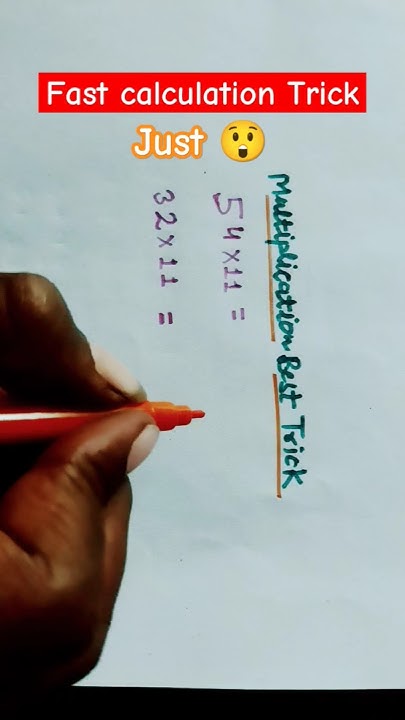 Fast calculation Trick
Just 😲
Multiplication Best Trick
54 x 11 =
32 x 11 =